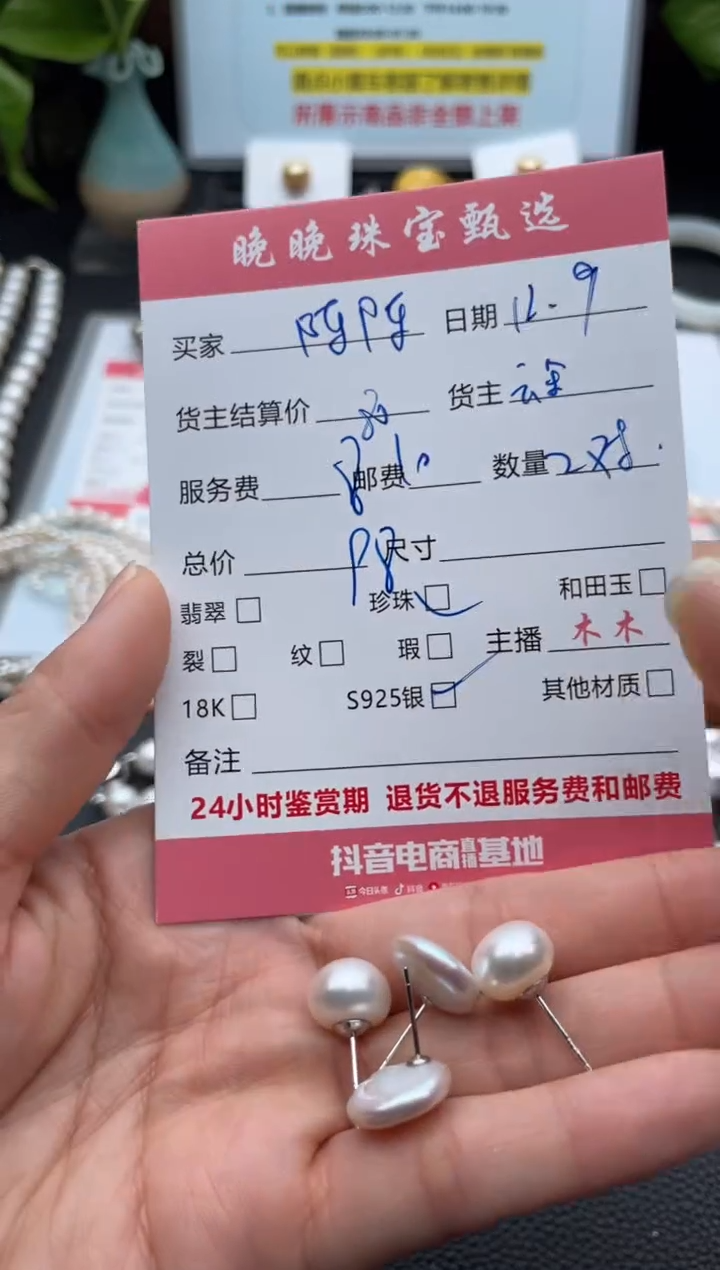 所展示商品非全部上架
晚晚珠宝甄选
买家 阿阿 日期 12.9
货主结算价 货主 云金
服务费 8 邮费 10 数量 2对.
总价 98 尺寸
翡翠 珍珠 和田玉
裂 纹 瑕 主播 木木
18K S925银 其他材质
备注
24小时鉴赏期 退货不退服务费和邮费
抖音电商直播基地
今日头条 抖音